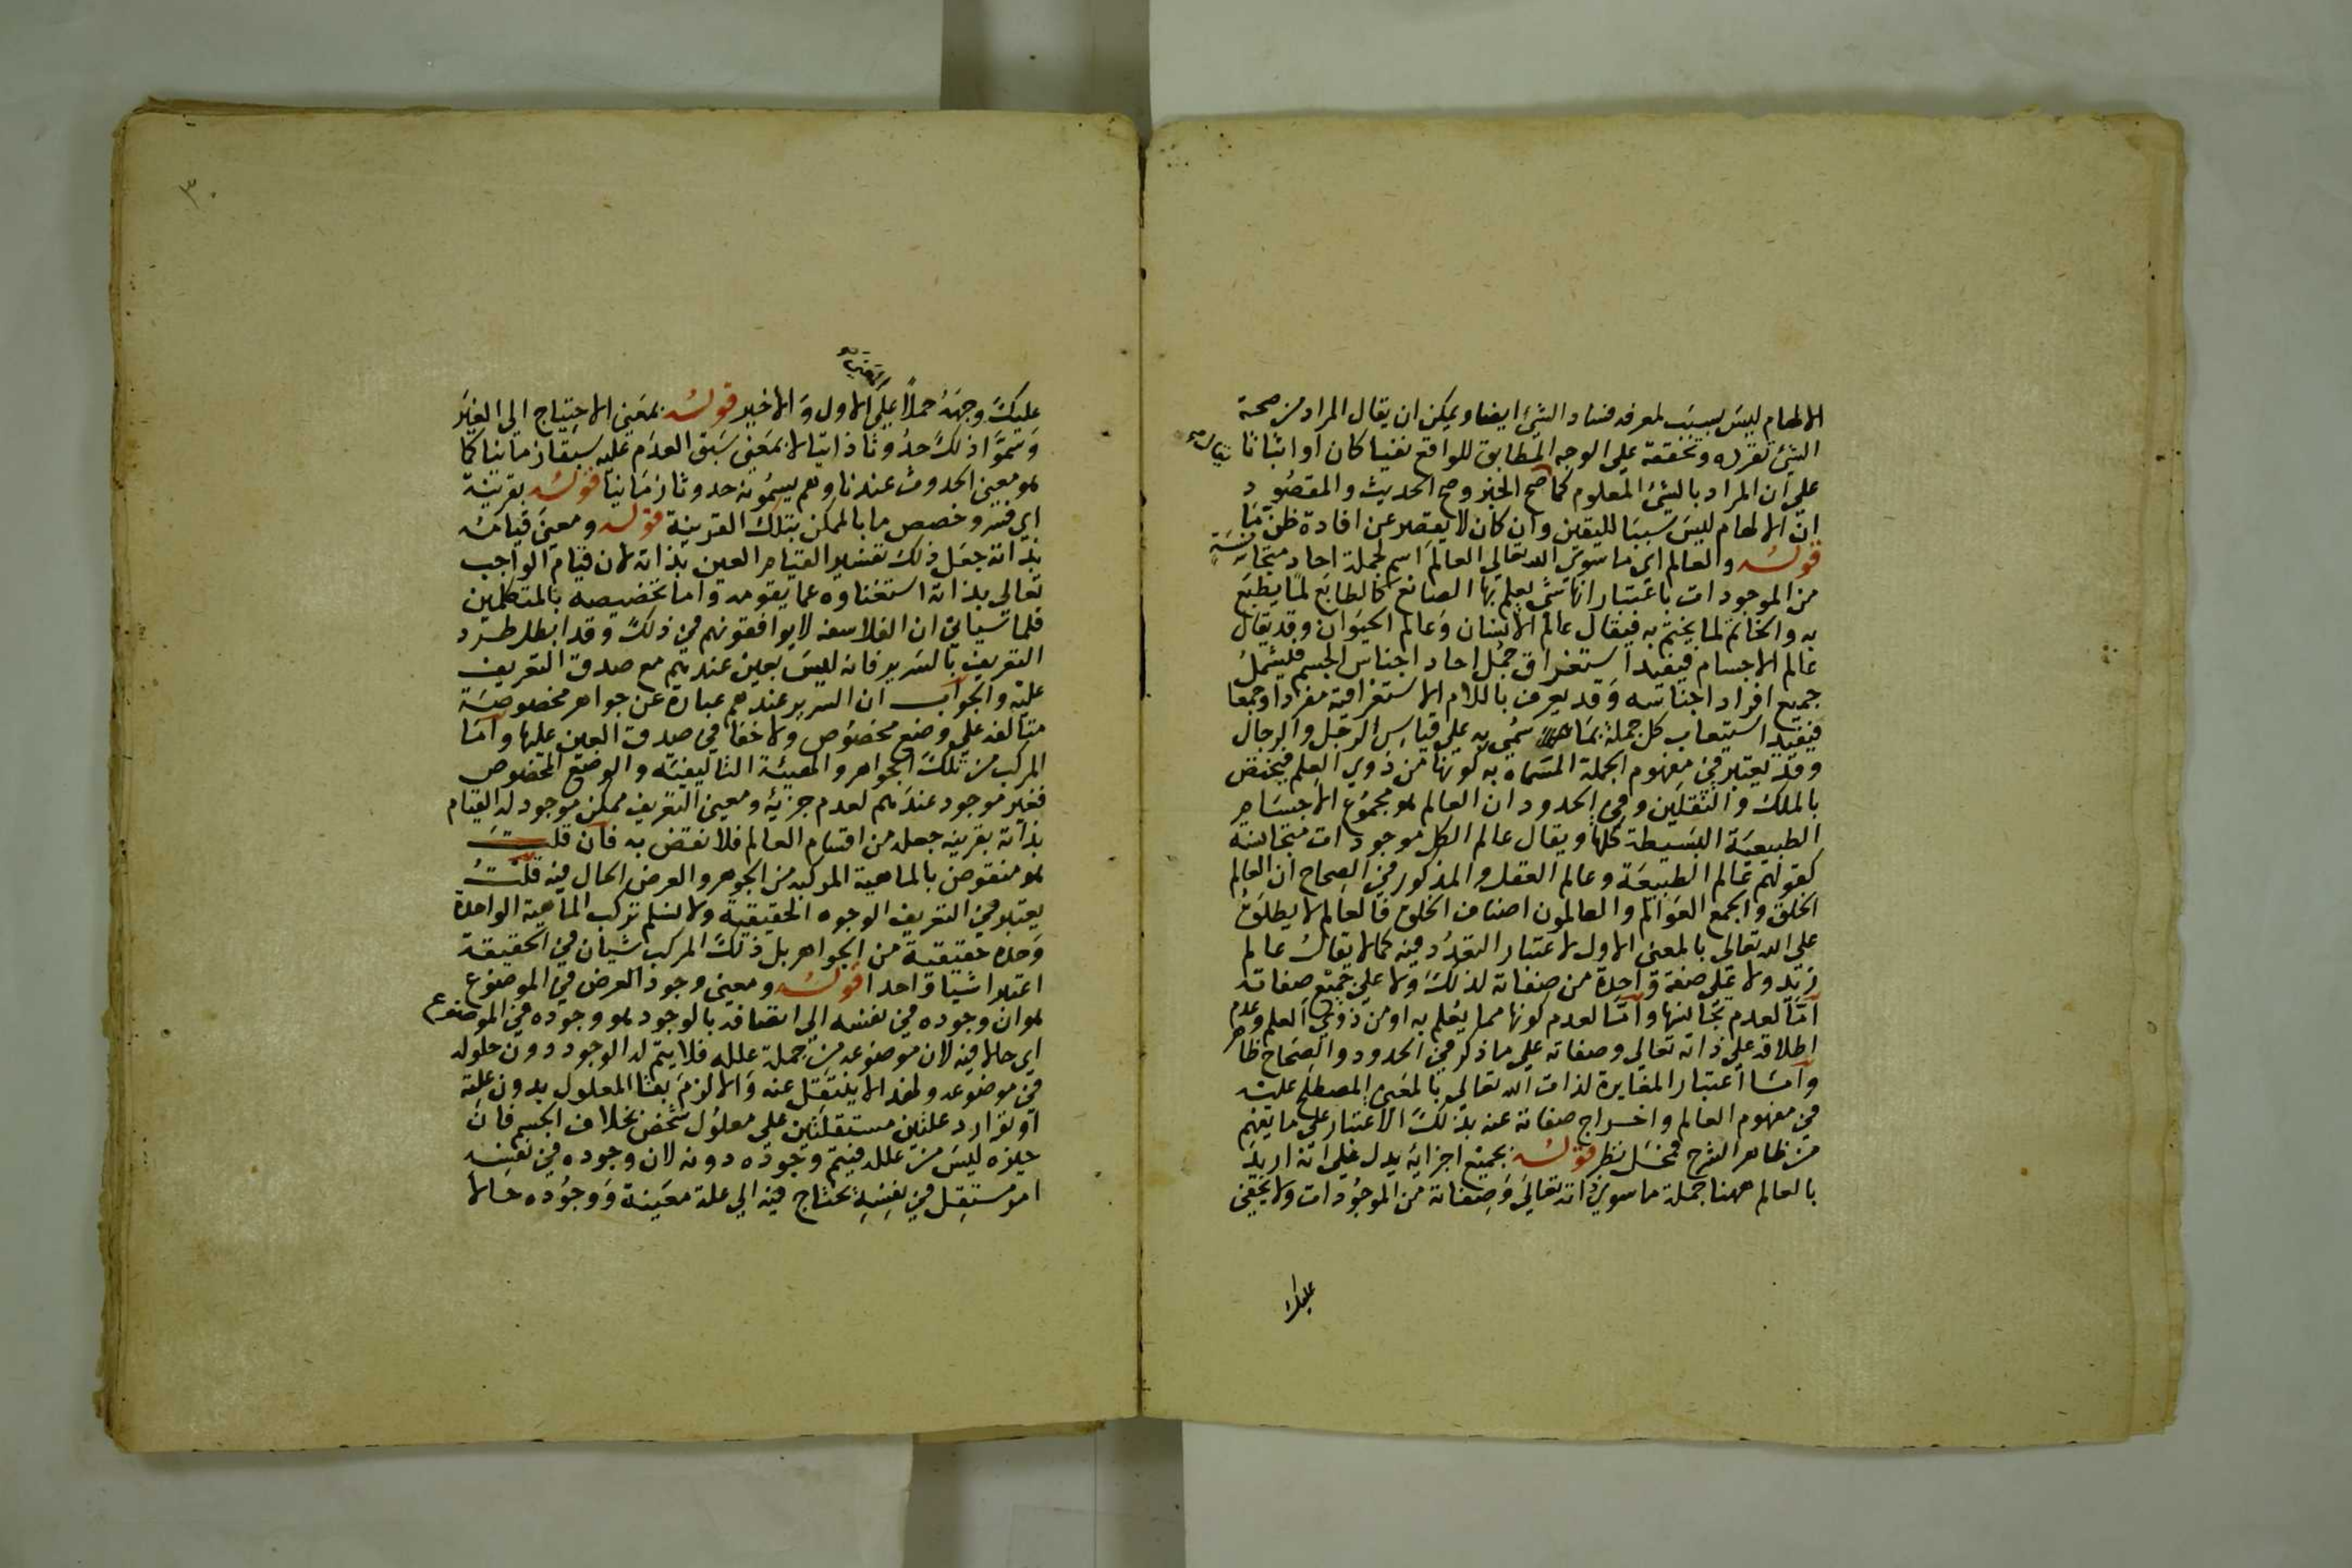 الالهام ليس بسبب لمعرفه فساد الشئ ايضا ويمكن ان يقال المراد من صحة
الشئ تقرره وتحققه على الوجه المطابق للواقع نفيا كان او اثباتا
على ان المراد بالشئ المعلوم كما صح الخبر وصح الحديث والمقصود
ان الالهام ليس سببا لليقين وان كان لا يقصر عن افادة ظن ما
قوله والعالم اى ما سوى الله تعالى العالم اسم لجملة احاد متجانسة
من الموجودات باعتبار انها شئ يعلم بها الصانع كالطابع لما يطبع
به والخاتم لما يختم به فيقال عالم الانسان وعالم الحيوان وقد يقال
عالم الاجسام فيفيد استغراق جمل احاد اجناس الجسم فليشمل
جميع افراد اجناسه وقد يعرف باللام الاستغراقية مفردا وجمعا
فيفيد استيعاب كل جملة بما سمى به على قياس الرجل والرجال
وقد يعتبر في مفهوم الجملة المسماة به كونها من ذوى العلم فيختص
بالملك والثقلين وفي الحدود ان العالم هو مجموع الاجسام
الطبيعية البسيطة كلها ويقال عالم الكل موجودات متجانسة
كقولهم عالم الطبيعة وعالم العقل والمذكور في الصحاح ان العالم
الخلق والجمع العوالم والعالمون اصناف الخلق فالعالم لا يطلق
على الله تعالى بالمعنى الاول لاعتبار التعدد فيه كما لا يقال عالم
زيد ولا على صفة واحدة من صفاته لذلك ولا على جميع صفاته
اما لعدم تجانسها واما لعدم كونها مما يعلم به او من ذوى العلم وعدم
اطلاقه على ذاته تعالى وصفاته على ما ذكر في الحدود والصحاح ظاهر
واما اعتبار المغايرة لذات الله تعالى بالمعنى المصطلح عليه
في مفهوم العالم واخراج صفاته عنه بذلك الاعتبار على ما يفهم
من ظاهر الشرح فمحل نظر قوله بجميع اجزائه يدل على انه اريد
بالعالم ههنا جملة ما سوى ذاته تعالى وصفاته من الموجودات ولا يخفى
عليك
٣
عليك وجهه حملا على الاول والاخير قوله بمعنى الاحتياج الى الغير
وسموا ذلك حدوثا ذاتيا لا بمعنى سبق العدم عليه سبقا زمانيا كما
هو معنى الحدوث عندنا وهم يسمونه حدوثا زمانيا قوله بقرينة
اي فسر وخصص ما بالممكن بتلك القرينة قوله ومعنى قيامه
بذاته جعل ذلك تفسير القيام العين بذاته لان قيام الواجب
تعالى بذاته استغناوه عما يقومه واما تخصيصه بالمتكلمين
فلما سياتي ان الفلاسفه لا يوافقونهم في ذلك وقد ابطل طرد
التعريف بالسرير فانه ليس بعين عندهم مع صدق التعريف
عليه والجواب ان السرير عندهم عبارة عن جواهر مخصوصة
متالفه على وضع مخصوص ولا خفا في صدق العين عليها واما
المركب من تلك الجواهر والهيئة التاليفية والوضع المخصوص
فغير موجود عندهم لعدم جزئه ومعنى التعريف ممكن موجود له القيام
بذاته بقرينه جعله من اقسام العالم فلا نقض به فان قلت
هو منقوض بالماهية المركبه من الجوهر والعرض الحال فيه قلت
يعتبر في التعريف الوجوه الحقيقية ولا نسلم تركب الماهية الواحدة
وحدة حقيقية من الجواهر بل ذلك المركب شيان في الحقيقة
اعتبرا شيا واحدا قوله ومعنى وجود العرض في الموضوع
هو ان وجوده في نفسه اى اتصافه بالوجود هو وجوده في الموضوع
اى حالا فيه لان موضوعه من جملة علله فلا يتم له الوجود دون حلوله
في موضوعه ولهذا لا ينتقل عنه والا لزم بقا المعلول بدون علته
او توارد علتين مستقلتين على معلول شخص بخلاف الجسم فان
حيزه ليس من علله فيتم وجوده دونه لان وجوده في نفسه
امر مستقل في نفسه يحتاج فيه الى علة معينة ووجوده حالا